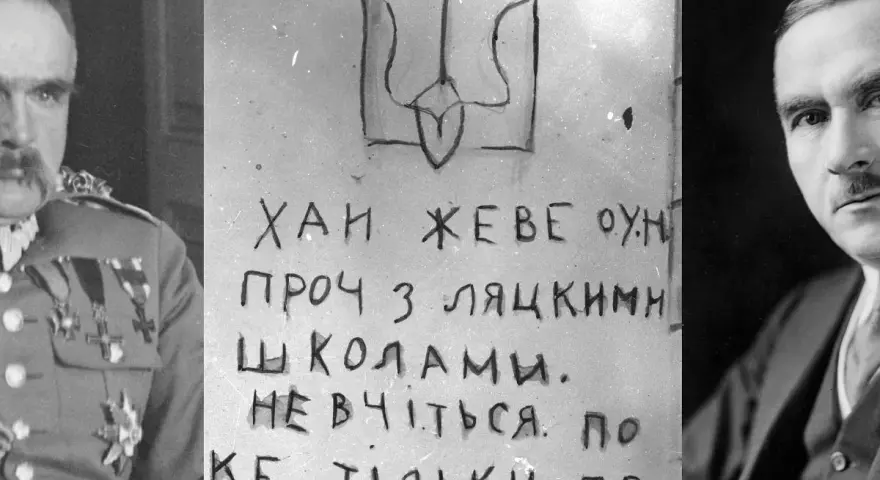 ХАИ ЖЕВЕ О.У.Н
ПРОЧ З ЛЯЦКИМИ
ШКОЛАМИ.
НЕ ВЧІТЬСЯ. ПО
КЕ ТІЛЬКИ ПО